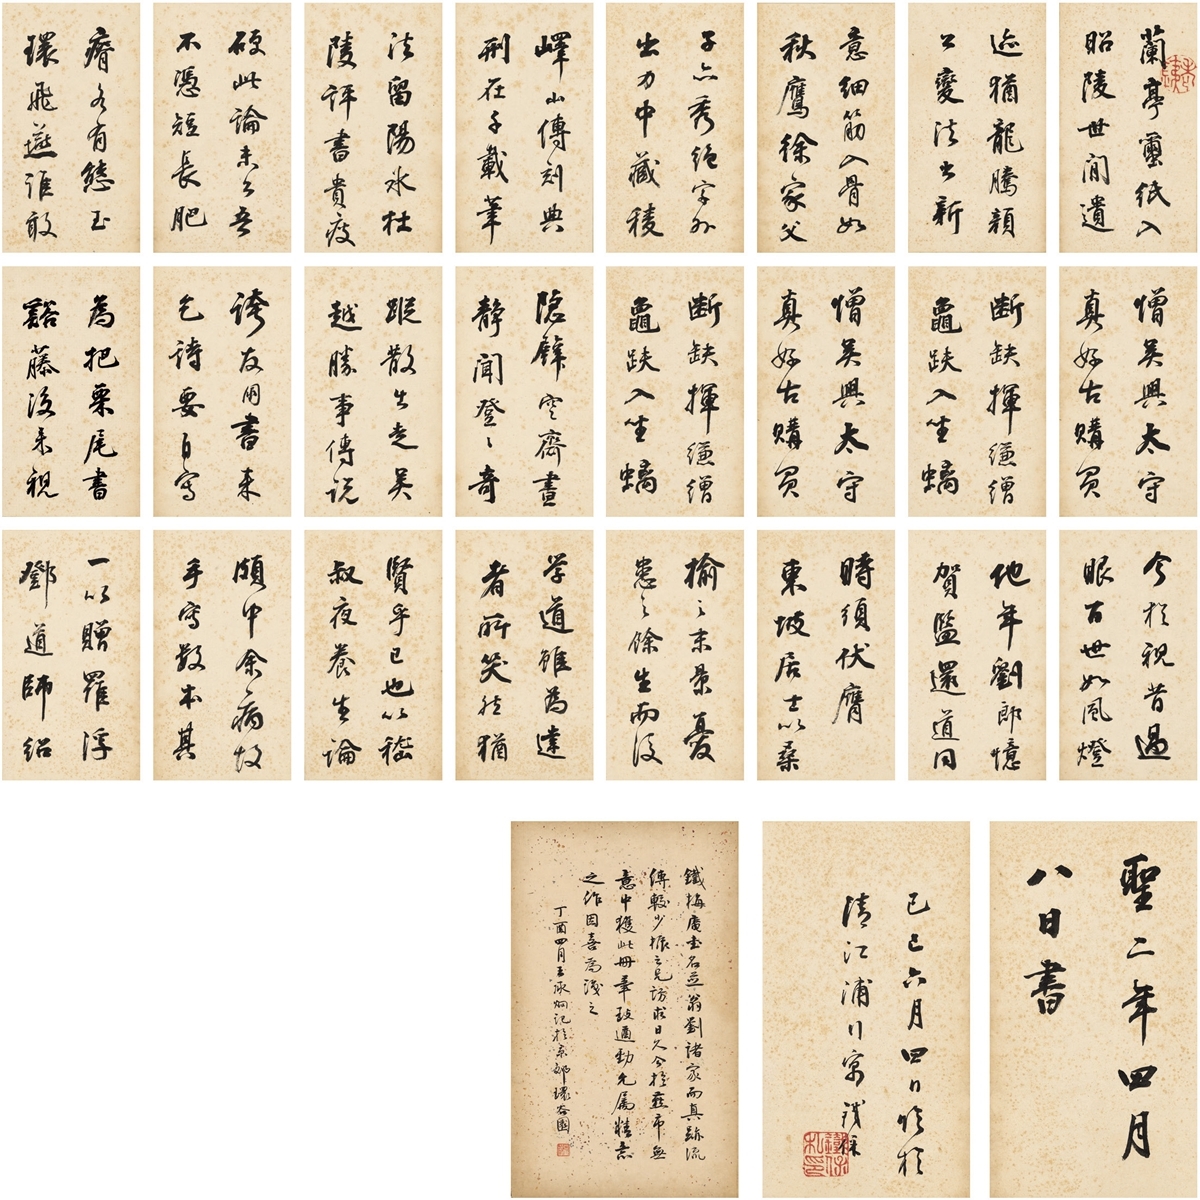 蘭亭蠒紙入
昭陵世間遺
迹猶龍騰顏
公變法出新
意細筋入骨如
秋鷹徐家父
子亦秀絕字外
出力中藏稜
嶧山傳刻典
刑在千載筆
法留陽冰杜
陵評書貴瘦
硬此論未公吾
不憑短長肥
瘠各有態玉
環飛燕誰敢
憎吳興太守
真好古購買
斷缺揮縑繒
龜趺入坐螭
憎吳興太守
真好古購買
斷缺揮縑繒
龜趺入坐螭
隱壁空齋晝
靜聞登登奇
蹤散出走吳
越勝事傳說
誇友朋書來
乞詩要自寫
為把栗尾書
谿藤後來視
今猶視昔過
眼百世如風燈
他年劉郎憶
賀監還道同
時須伏膺
東坡居士以桑
榆之末景憂
患之餘生而後
學道雖為達
者所笑然猶
賢乎已也以嵇
叔夜養生論
頗中余病故
手寫數本其
一以贈羅浮
鄧道師紹
聖二年四月
八日書
己巳六月四日臨於
清江浦行寓 鐵保
鐵保私印
鐵梅庵書名並翁劉諸家而真跡流
傳較少振之兄訪求日久今於燕市無
意中獲此冊筆致遒勁尤屬精意
之作因喜為識之
丁酉四月王承炯記於京邸環谷園